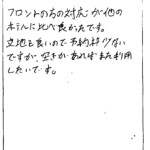 フロントの方の対応が他の
ホテルに比べ良かたです。
立地も良いので予約枠少ない
ですが、空きがあればまた利用
したいです。